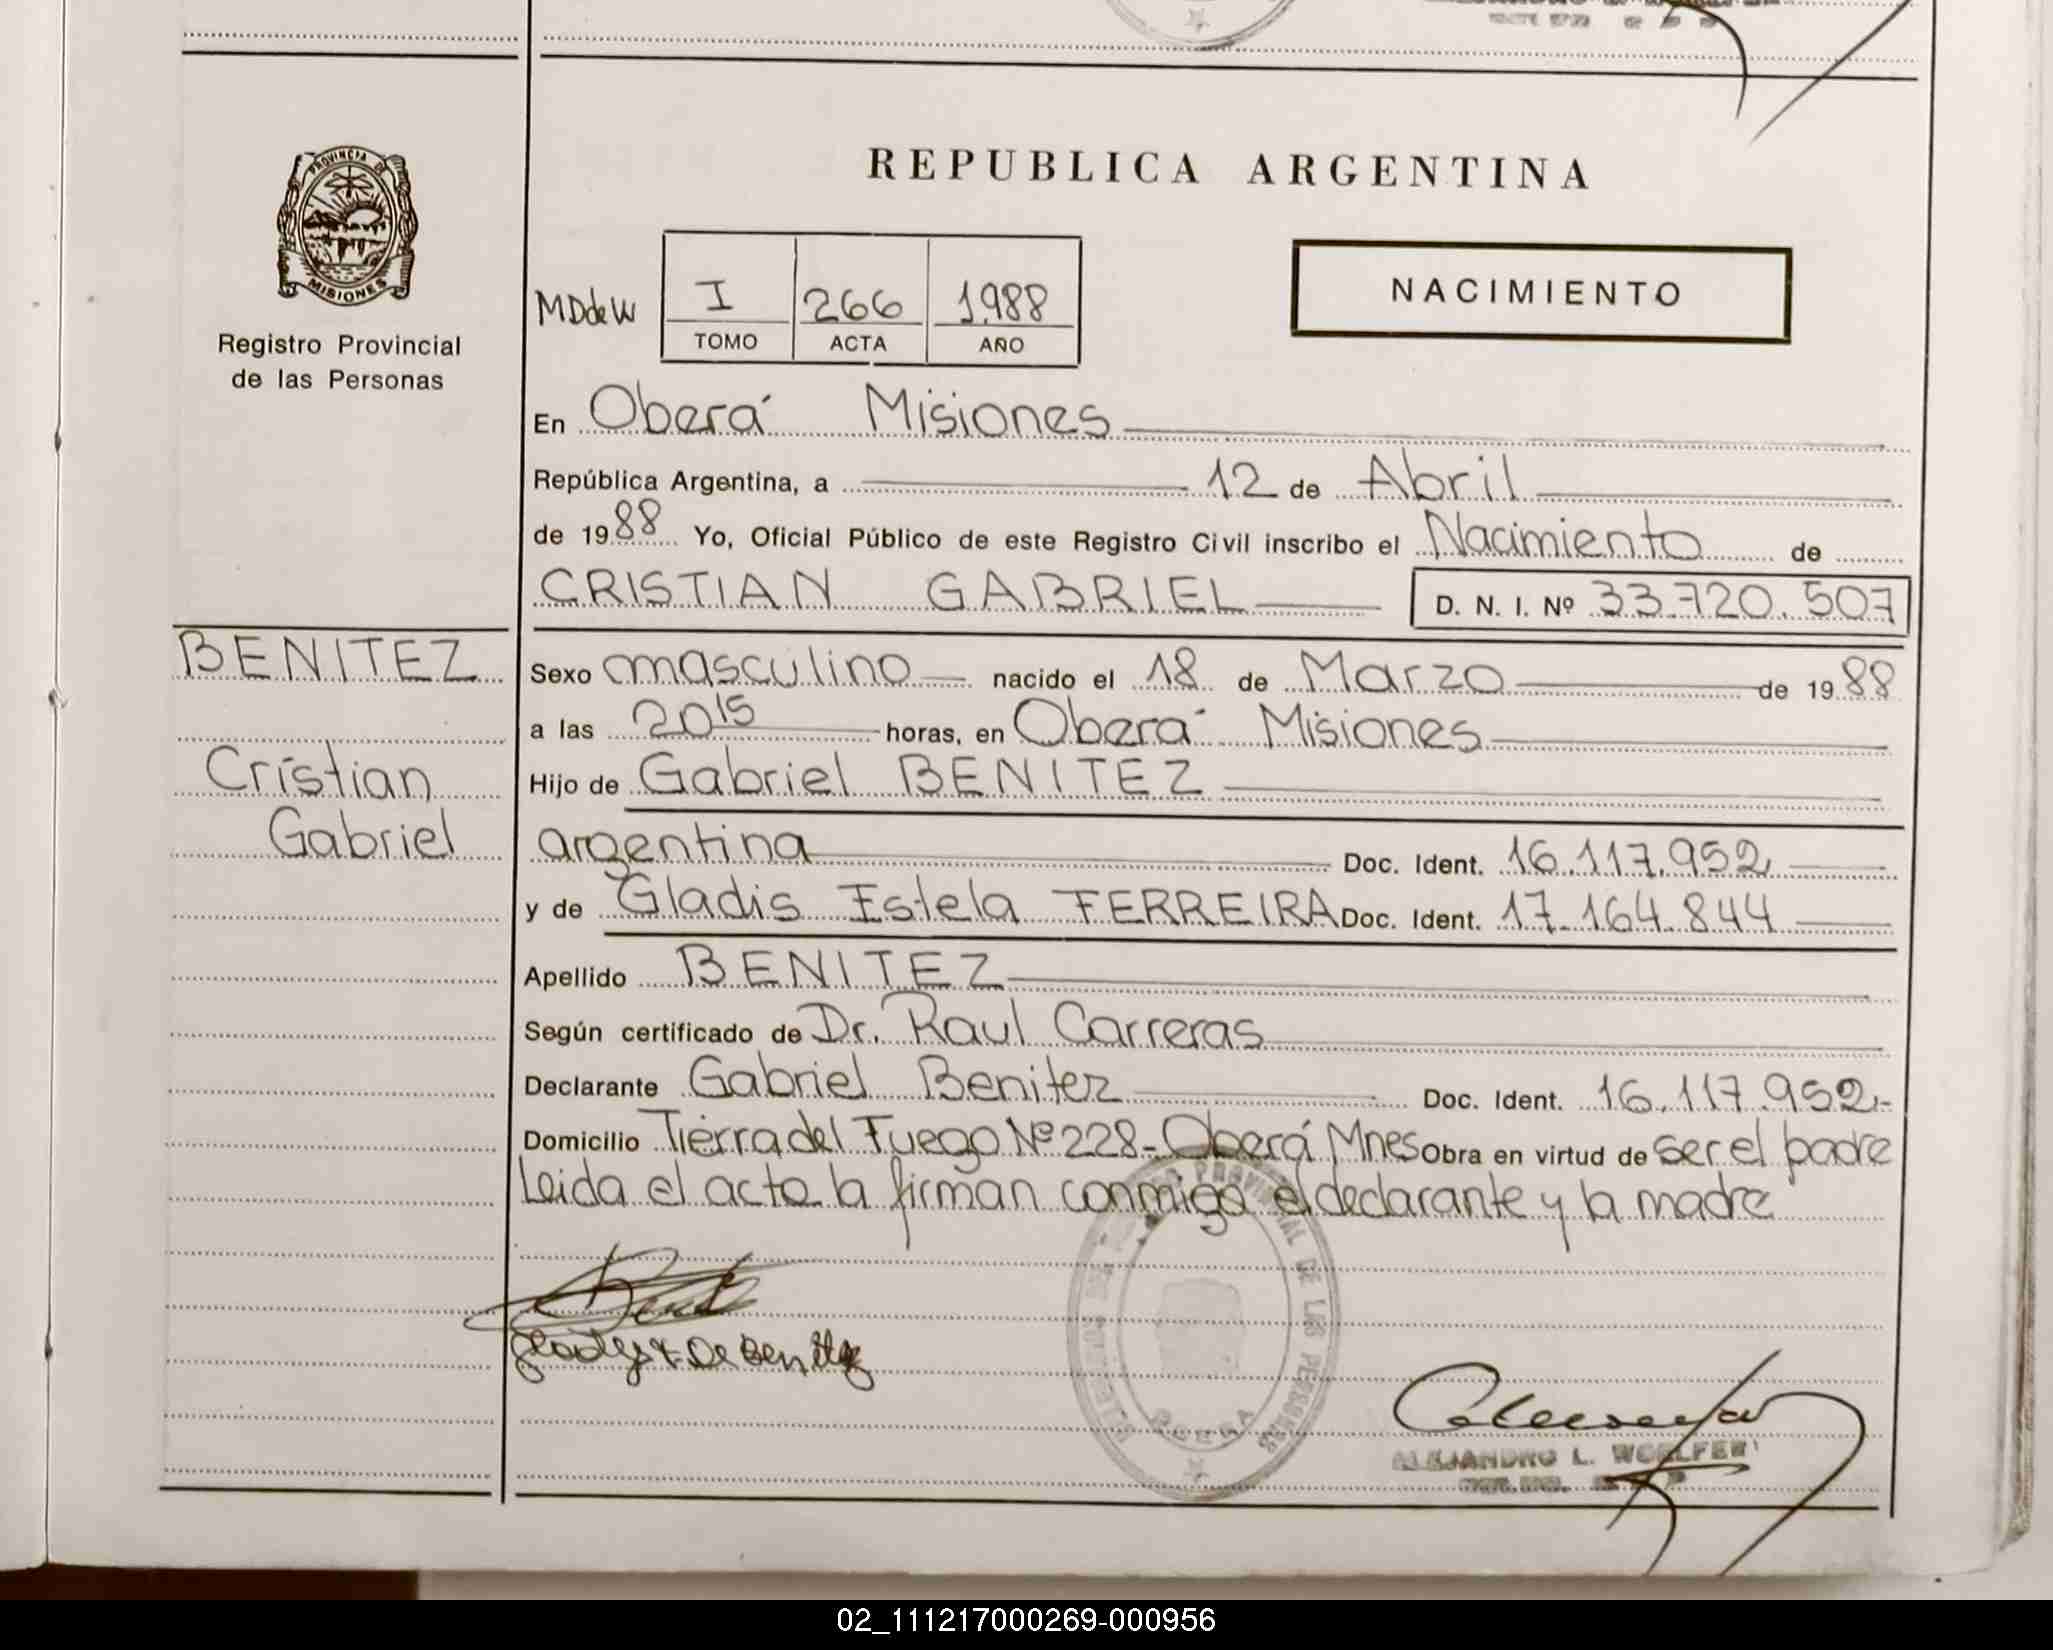 REPUBLICA ARGENTINA
PROVINCIA DE
MISIONES
Registro Provincial
de las Personas
MDdeW
I 266 1.988
TOMO ACTA AÑO
NACIMIENTO
En Oberá Misiones
República Argentina, a 12 de Abril
de 1988 Yo, Oficial Público de este Registro Civil inscribo el Nacimiento de
CRISTIAN GABRIEL D. N. I. Nº 33.720.507
BENITEZ
Cristian
Gabriel
Sexo masculino nacido el 18 de Marzo de 1988
a las 20 15 horas, en Oberá Misiones
Hijo de Gabriel BENITEZ
argentina Doc. Ident. 16.117.952
y de Gladis Estela FERREIRA Doc. Ident. 17.164.844
Apellido BENITEZ
Según certificado de Dr. Raul Carreras
Declarante Gabriel Benitez Doc. Ident. 16.117.952.-
Domicilio Tierra del Fuego Nº 228- Oberá Mnes Obra en virtud de ser el padre
Leida el acta la firman conmigo el declarante y la madre
PROVINCIAL DE LAS PERSONAS
ALEJANDRO L. WOELFER
02_111217000269-000956